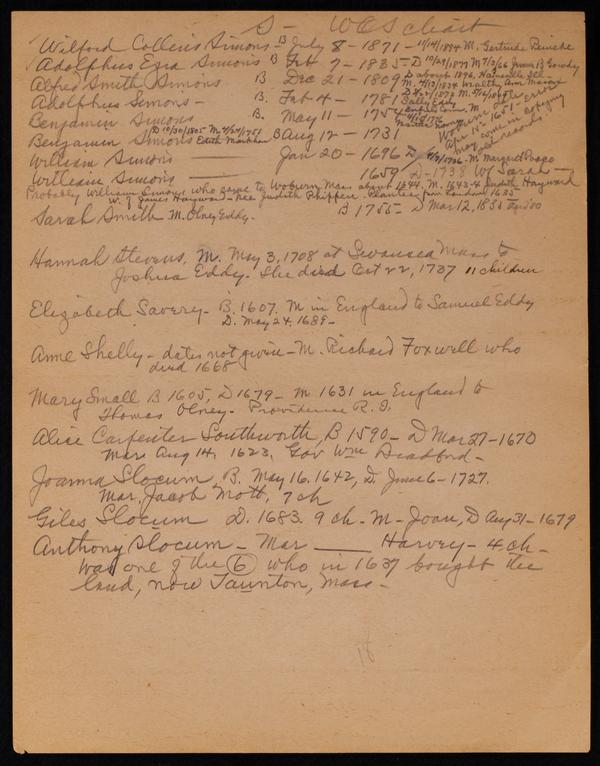 S - WCS chart
Wilford Collins Simons - B July 8 - 1871 - 11/14/1894 M. Gertrude
Adolphus Ezra Simons B Feb 7 - 1835 - D 10/29/1877 M 7/3/66 B Gowdy
Alfred Smith Simons B Dec 21 - 1809 D about 1896, Ill - M. 4/13/1834 Wealthy Ann
Adolphus Simons - B. Feb 4 - 1781 Sally Eddy
Benjamin Simons B. May 11 - Martha
Benjamin Simons B Aug 12 - 1731
D 10/30/1805 M 4/24/1751 Edith Markham
William Simons Jan 20 - 1696 D M. Margaret
William Simons - 1659 D - 1738 W/ Sarah -
Probably William Simons who came to Woburn Mass about 1644, M. 1643-4 Judith Hayward
W. of James Hayward - nee Judith Phippen. from London 1635 -
Sarah Smith M. Olney Eddy - B 1755 - D Mar 12, 1838
Woburn
Apr 11th 1651 - Error
may come in copying
old records.
Hannah Stevens, M. May 3, 1708 at Swansea Mass to
Joshua Eddy. She died Oct 22, 1737 11 children
Elizabeth Savery - B. 1607. M in England to Samuel Eddy
D. May 24, 1689 -
Anne Shelly - dates not given - M. Richard Foxwell who
died 1668
Mary Small B 1605, D 1679 - M 1631 in England to
Thomas Olney - Providence R. I.
Alice Carpenter Southworth, B 1590 - D Mar 27 - 1670
Mar. Aug 14, 1623, Gov Wm Bradford -
Joanna Slocum, B. May 16, 1642, D. June 6 - 1727.
Mar. Jacob Mott, 7 ch
Giles Slocum D. 1683. 9 ch. M - Joan, D Aug 31 - 1679
Anthony Slocum - Mar ____ Harvey - 4 ch -
was one of the (6) who in 1637 bought the
land, now Taunton, Mass -
18